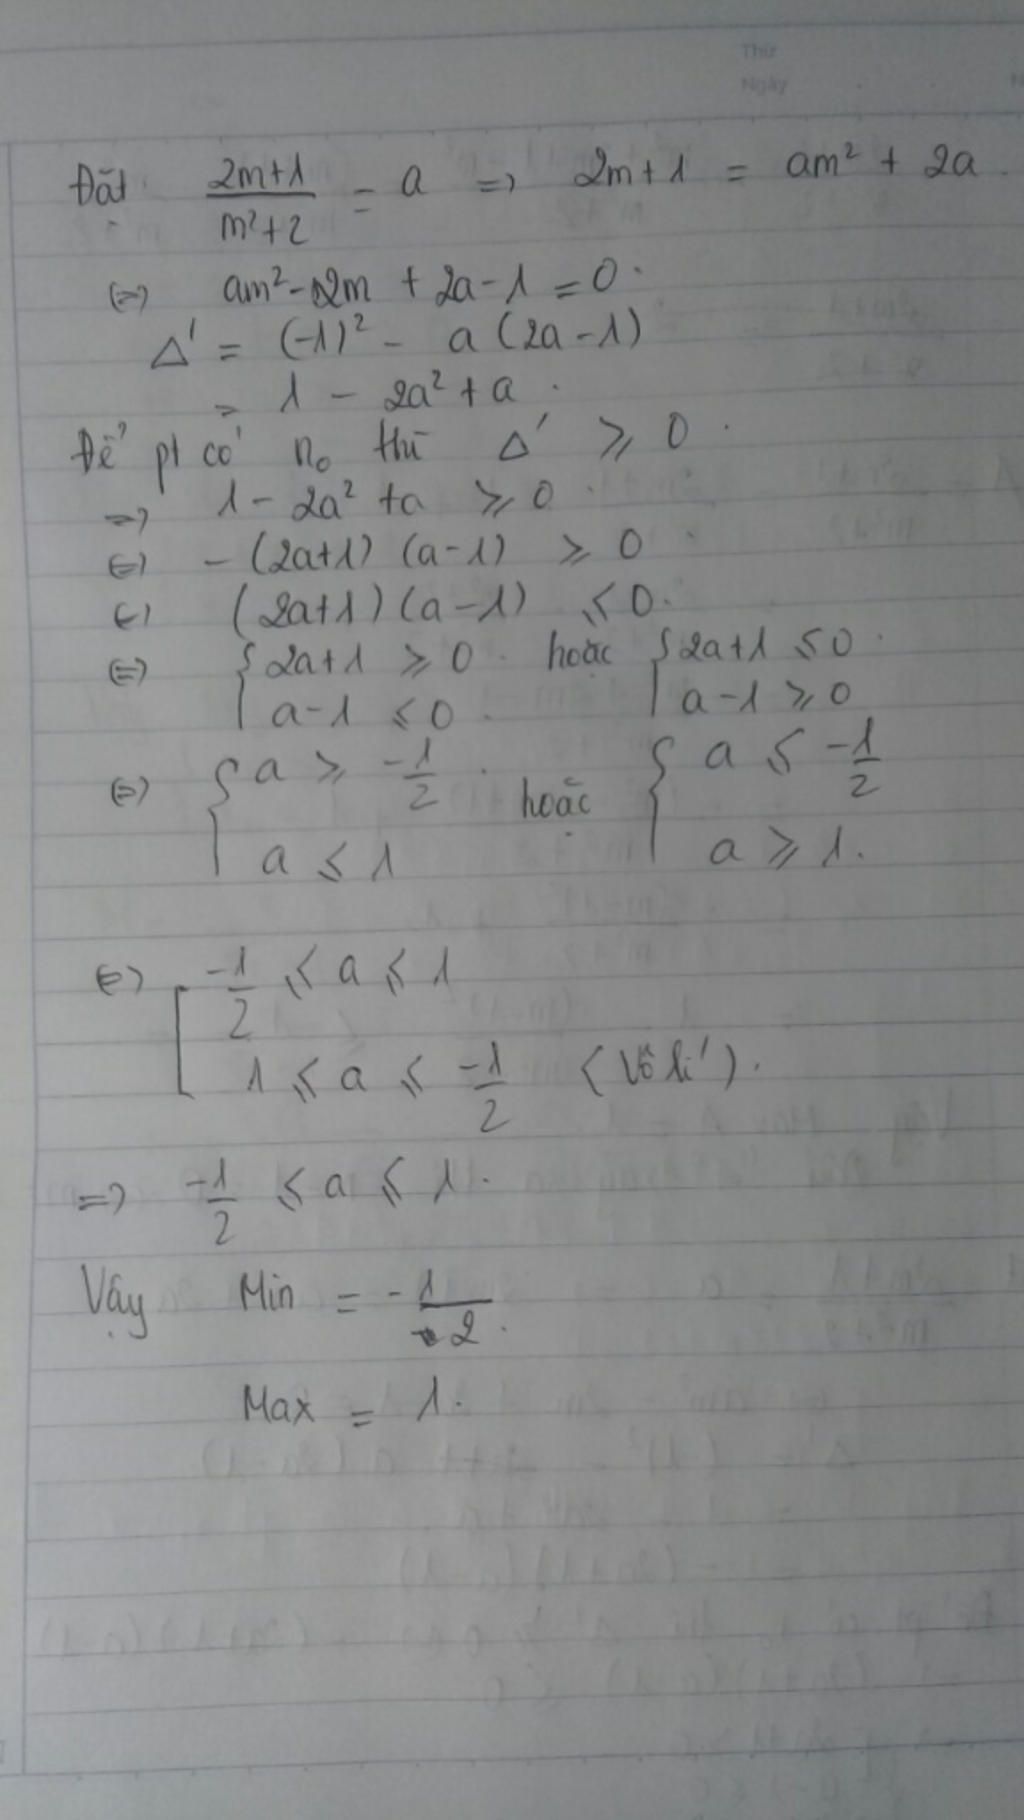 Thứ
Ngày
Đặt (2m+1)/(m²+2) = a => 2m+1 = am² + 2a.
(=) am² - 2m + 2a - 1 = 0.
Δ' = (-1)² - a(2a-1)
= 1 - 2a² + a.
Để pt có n₀ thì Δ' ⩾ 0.
=> 1 - 2a² + a ⩾ 0.
(=) -(2a+1)(a-1) ⩾ 0
(=) (2a+1)(a-1) ⩽ 0.
(=) { 2a+1 ⩾ 0 hoặc { 2a+1 ⩽ 0.
a-1 ⩽ 0 a-1 ⩾ 0
(=) { a ⩾ -1/2 hoặc { a ⩽ -1/2
a ⩽ 1 a ⩾ 1.
(=) [ -1/2 ⩽ a ⩽ 1
1 ⩽ a ⩽ -1/2 (Vô lí).
=> -1/2 ⩽ a ⩽ 1.
Vậy Min = -1/2.
Max = 1.